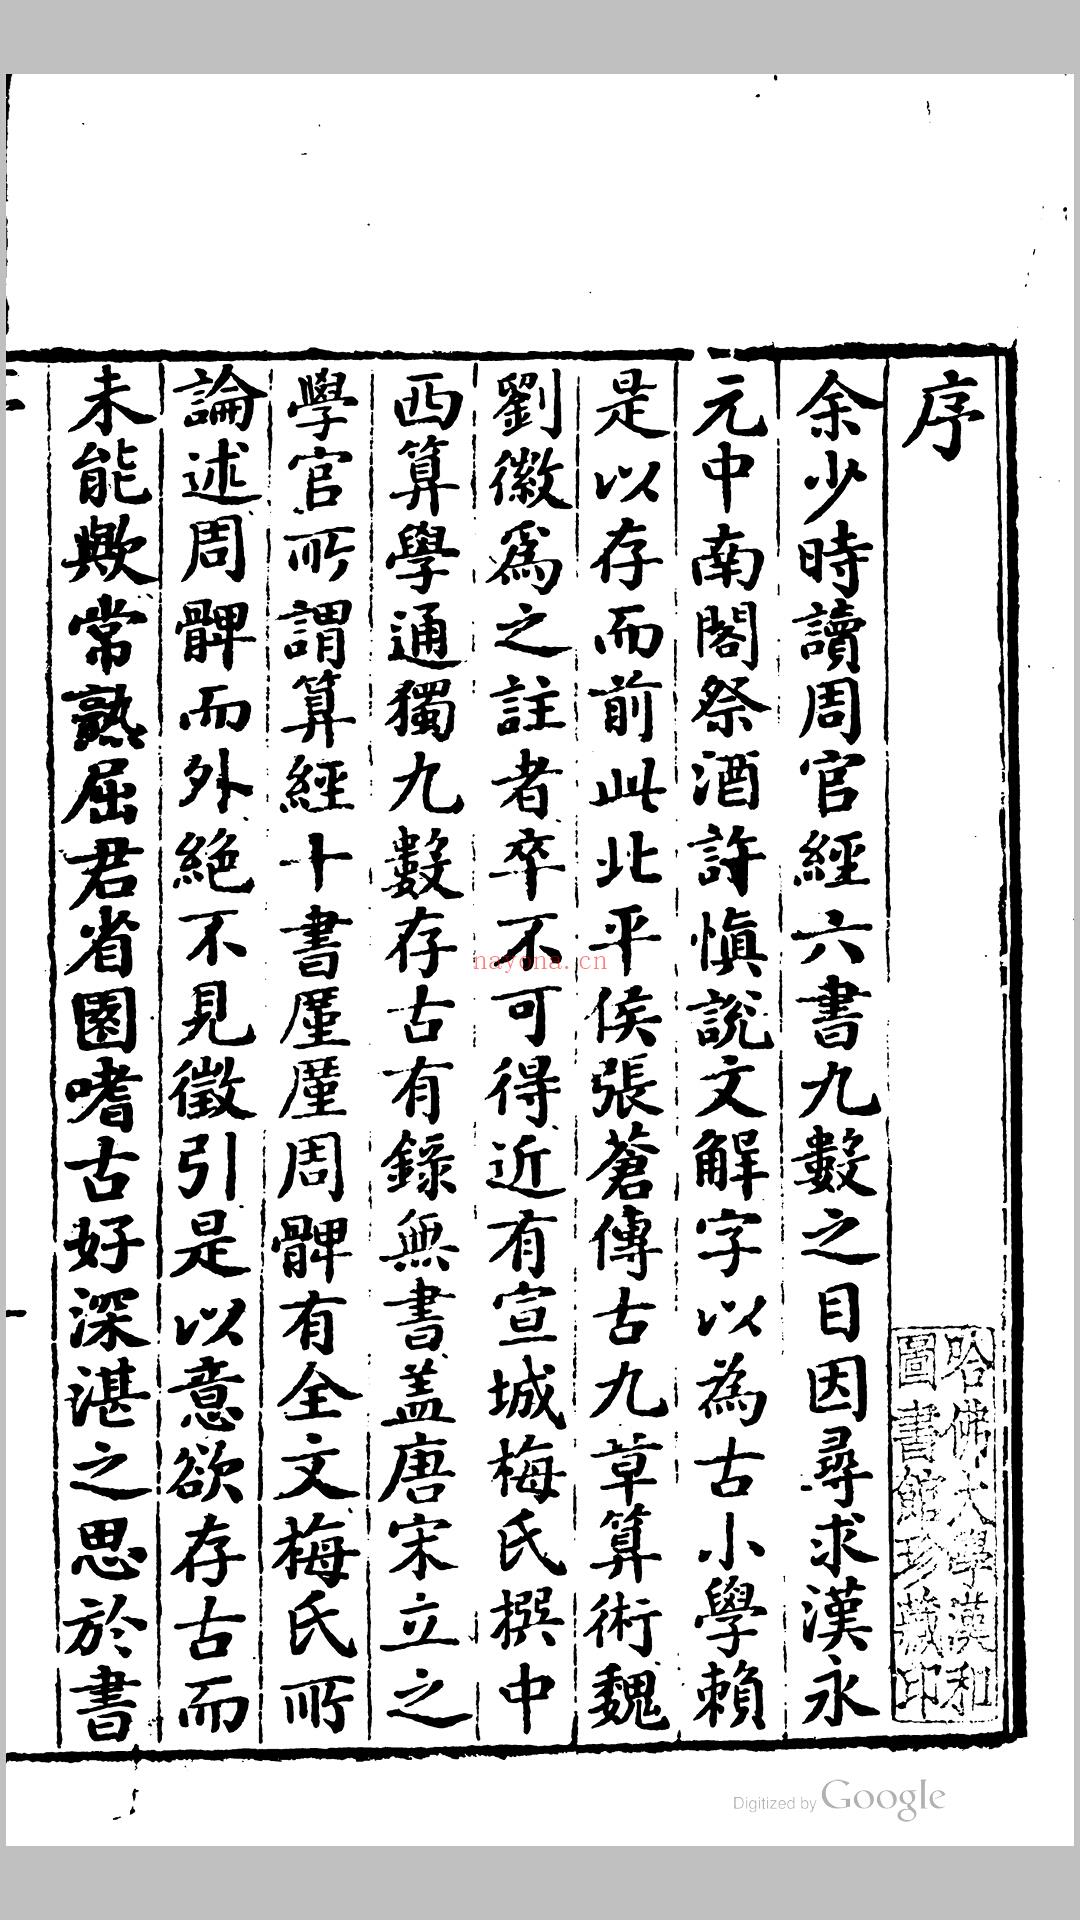 序
余少時讀周官經六書九數之目因尋求漢永
元中南閣祭酒許慎說文解字以為古小學賴
是以存而前此北平侯張蒼傳古九章算術魏
劉徽爲之註者卒不可得近有宣城梅氏撰中
西算學通獨九數存古有錄無書盖唐宋立之
學官所謂算經十書厪厪周髀有全文梅氏所
論述周髀而外絶不見徵引是以意欲存古而
未能歟常熟屈君省園嗜古好深湛之思於書
哈佛大學漢和
圖書館珍藏印
nayona.cn
Digitized by Google